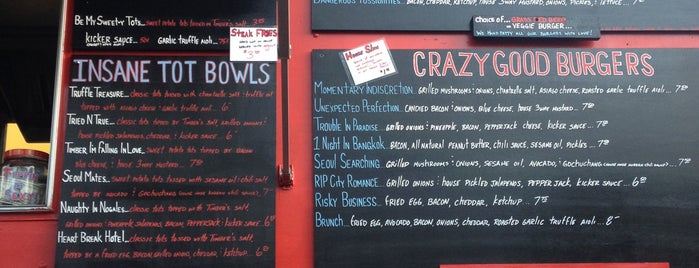 Be My Sweety Tots... sweet potato tots tossed in Timber's salt...
kicker sauce... 50¢ Garlic truffle aioli...
Steak Fries
INSANE TOT BOWLS
Truffle Treasure... classic tots tossed with chanterelle salt & truffle oil
topped with asiago cheese & garlic truffle aioli... 6
Tried N True... classic tots topped w/ Timber's salt, grilled onions,
house pickled jalapenos, cheddar, & kicker sauce... 6
Timber I'm Falling In Love... sweet potato tots topped w/ bacon
blue cheese, & house 3way mustard... 7
Seoul Mates... classic tots tossed w/ sesame oil & chili salt,
topped w/ avocado, & gochuchang
Naughty In Nogales... classic tots topped w/ Timber's salt,
grilled onions, pineapple, jalapenos, bacon, pepperjack & kicker sauce... 6
Heart Break Hotel... classic tots tossed with Timber's salt,
topped w/ a fried egg, bacon, grilled onion, cheddar, & ketchup... 6
Dangerous Possibilities... bacon, cheddar, ketchup, house 3way mustard, onions, pickles, & lettuce...
Choice of... GRASS FED BEEF
or VEGGIE BURGER...
We hand patty all our burgers with love!
House Slaw
CRAZY GOOD BURGERS
Momentary Indiscretion... grilled mushrooms & onions, chanterelle salt, asiago cheese, roasted garlic truffle aioli... 7.50
Unexpected Perfection... candied bacon & onions, blue cheese, house 3way mustard... 7.50
Trouble In Paradise... grilled onions & pineapple, bacon, pepperjack cheese, kicker sauce... 7.50
1 Night In Bangkok... bacon, all natural peanut butter, chili sauce, sesame oil, pickles... 7.50
Seoul Searching... grilled mushrooms & onions, sesame oil, avocado, & gochuchang
RIP City Romance... grilled onions & house pickled jalapenos, pepper jack, kicker sauce... 6.50
Risky Business... fried egg, bacon, cheddar, ketchup... 7.25
Brunch... fried egg, avocado, bacon, onions, cheddar, roasted garlic truffle aioli... 8-